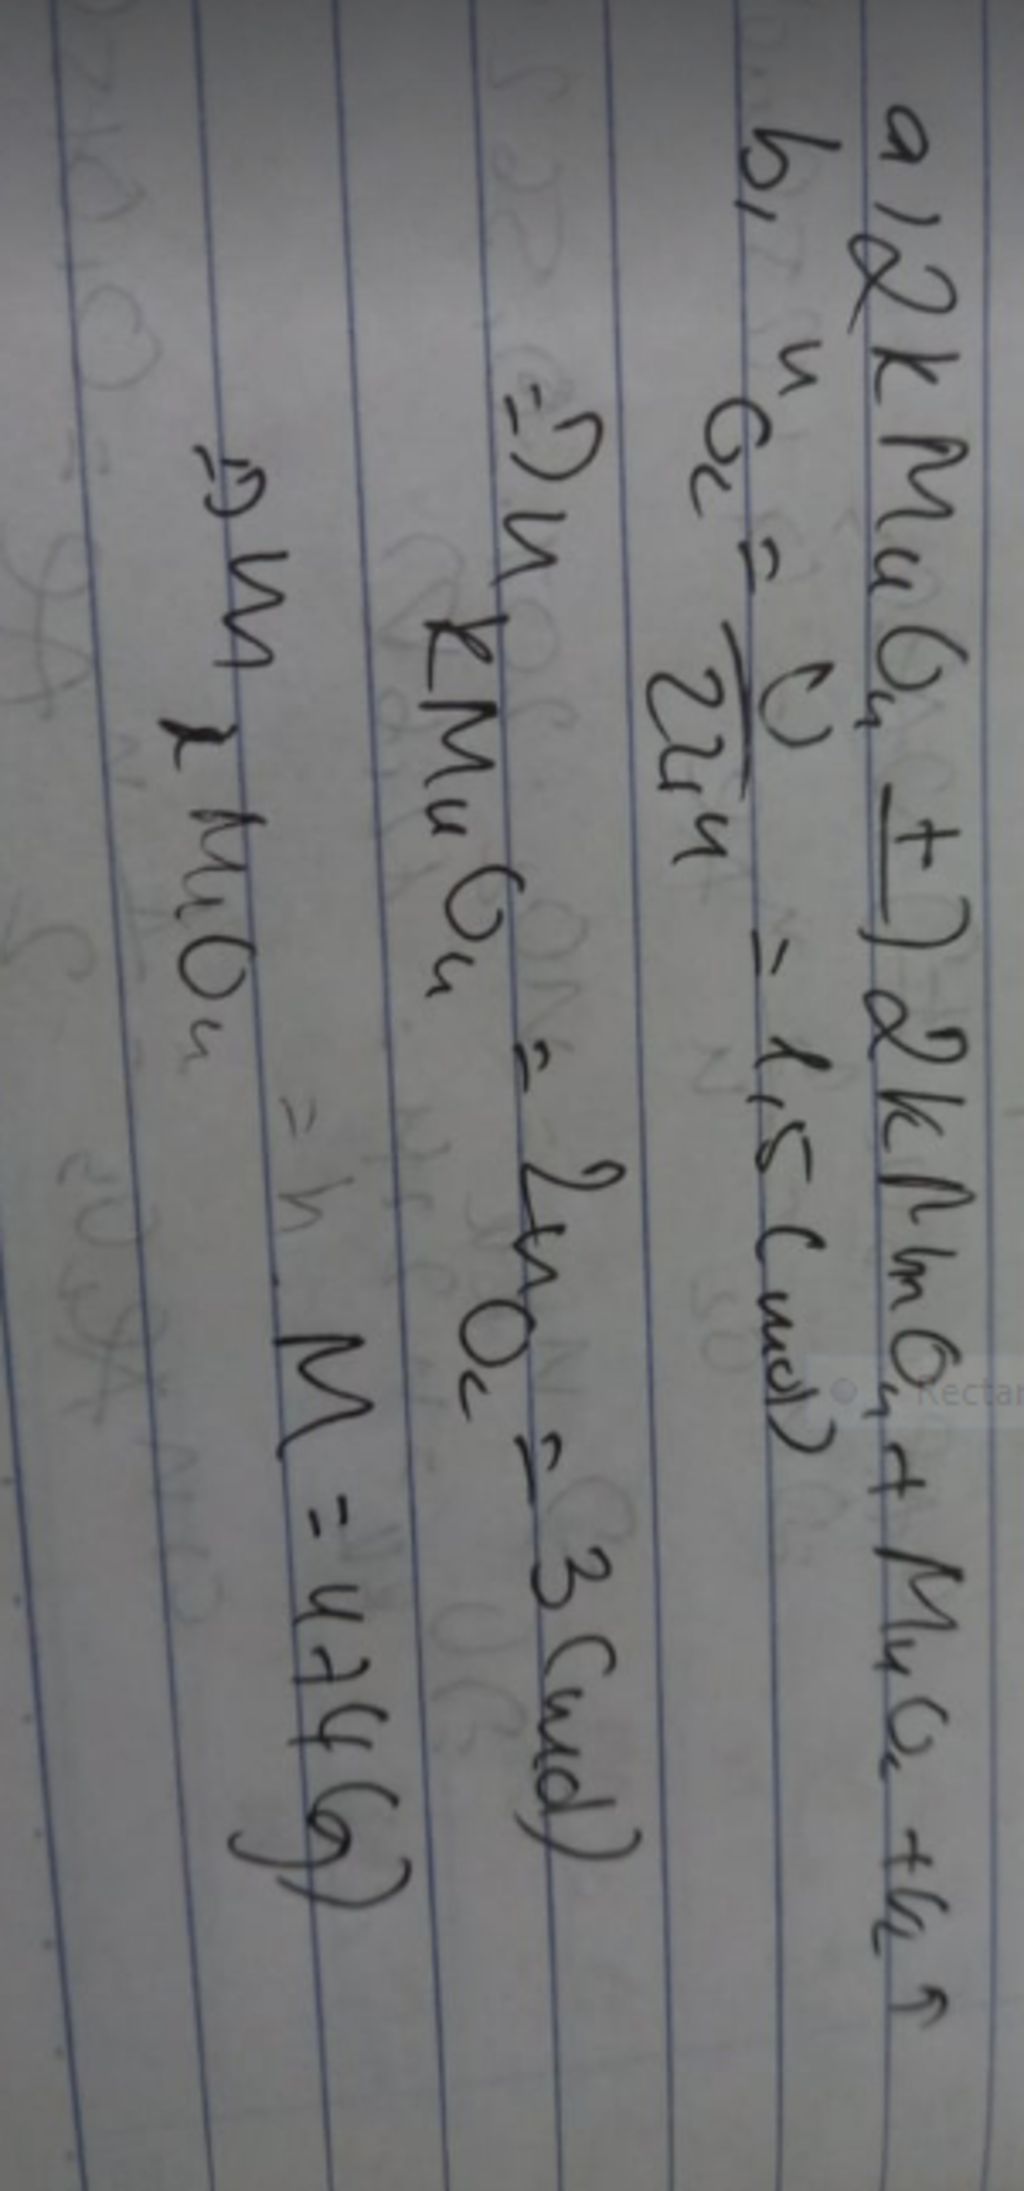 a, 2KMnO4 t°→ 2KMnO4 + MnO2 + O2 ↑
b, nO2 = V/22,4 = 1,5 (mol)
=> nKMnO4 = 2nO2 = 3 (mol)
=> mKMnO4 = n M = 474 (g)